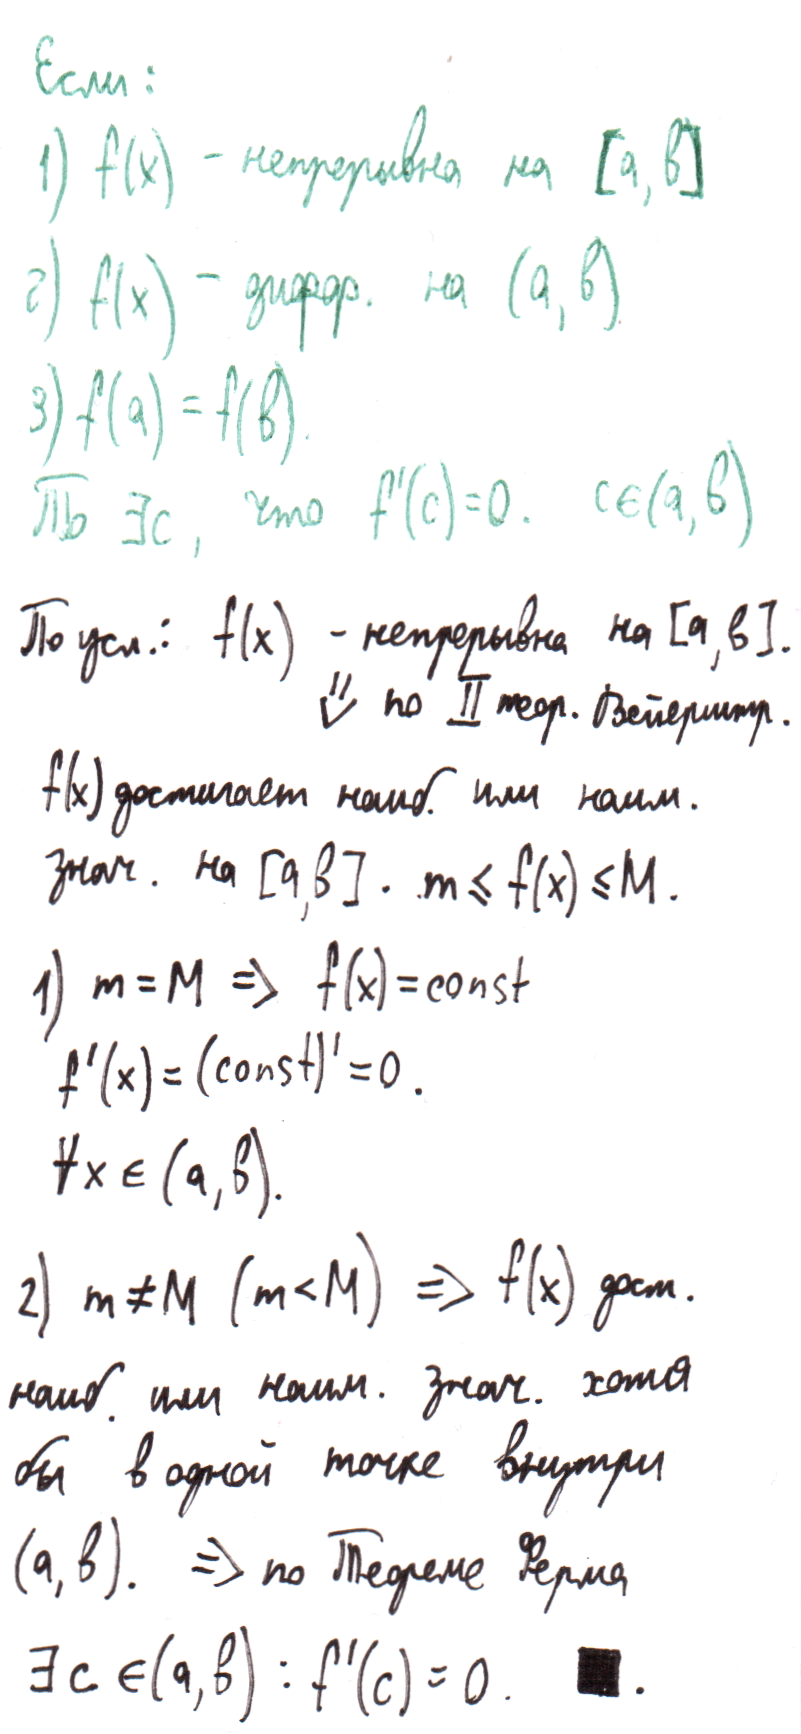 Если:
1) f(x) - непрерывна на [a, в]
2) f(x) - дифф. на (a, в)
3) f(a) = f(в).
То ∃c, что f'(c)=0. c∈(a, в)
По усл.: f(x) - непрерывна на [a, в].
⇓ по II теор. Вейерштр.
f(x) достигает наиб. или наим.
знач. на [a, в]. m ≤ f(x) ≤ M.
1) m = M => f(x) = const
f'(x) = (const)' = 0.
∀x ∈ (a, в).
2) m ≠ M (m < M) => f(x) дост.
наиб. или наим. знач. хотя
бы в одной точке внутри
(a, в). => по Теореме Ферма
∃ c ∈ (a, в) : f'(c) = 0. ■.